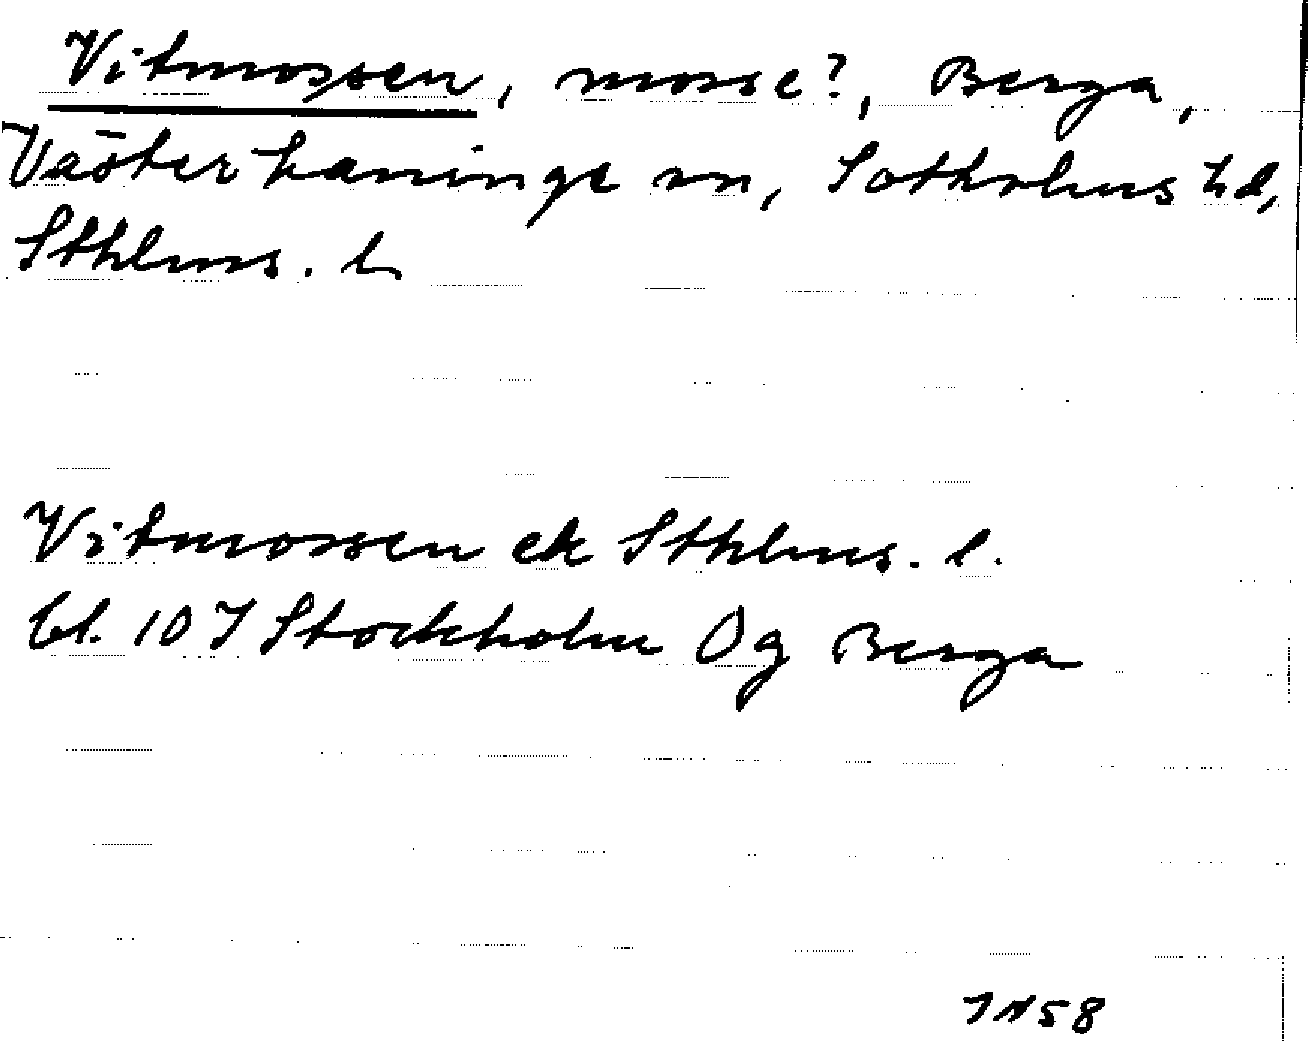 Vitmossen, mosse?, Berga,
Västerhaninge sn, Sotholms hd,
Sthlms. l.
Vitmossen ek Sthlms. l.
bl. 10 I Stockholm Og Berga